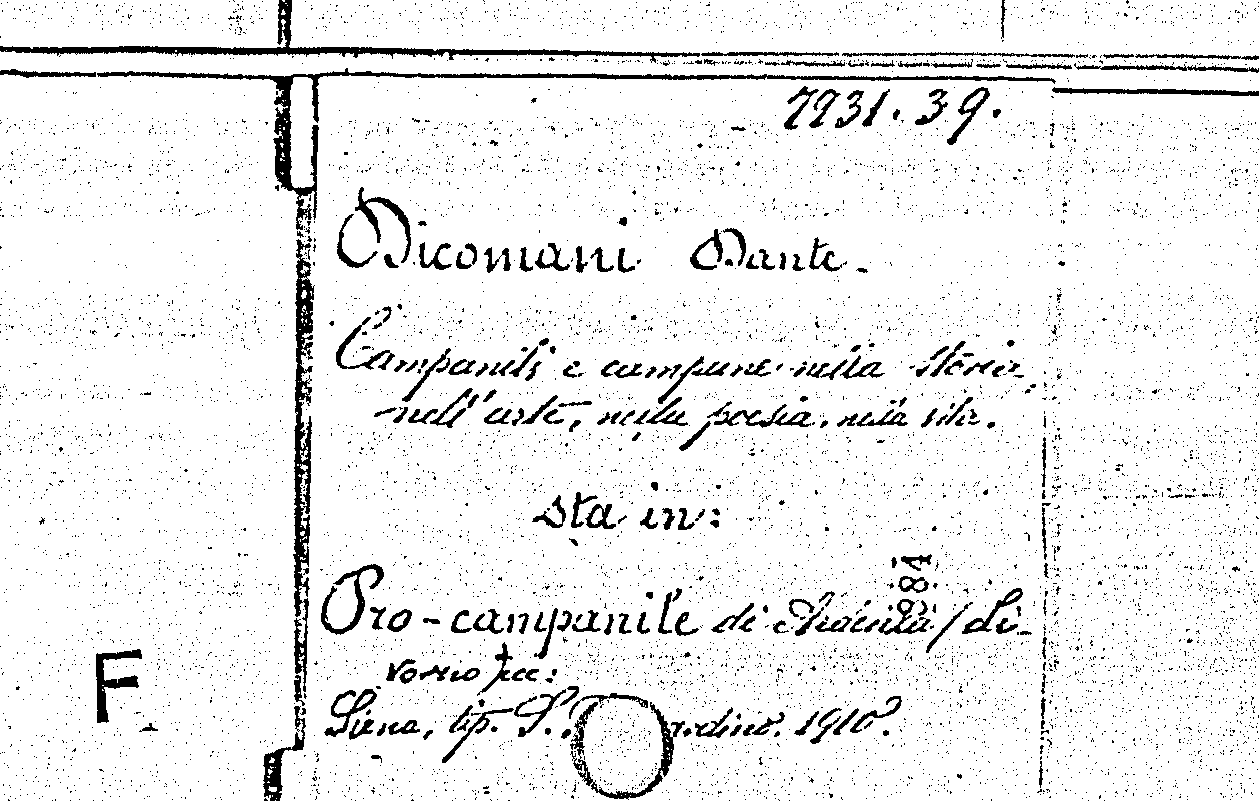 7931.39.
Dicomani Dante.
Campanili e campane nella storia
nell'arte, nella poesia, nella vita.
sta in:
Pro-campanile di /Li-
vorno
984
F
Siena, tip. S. ardino. 1910